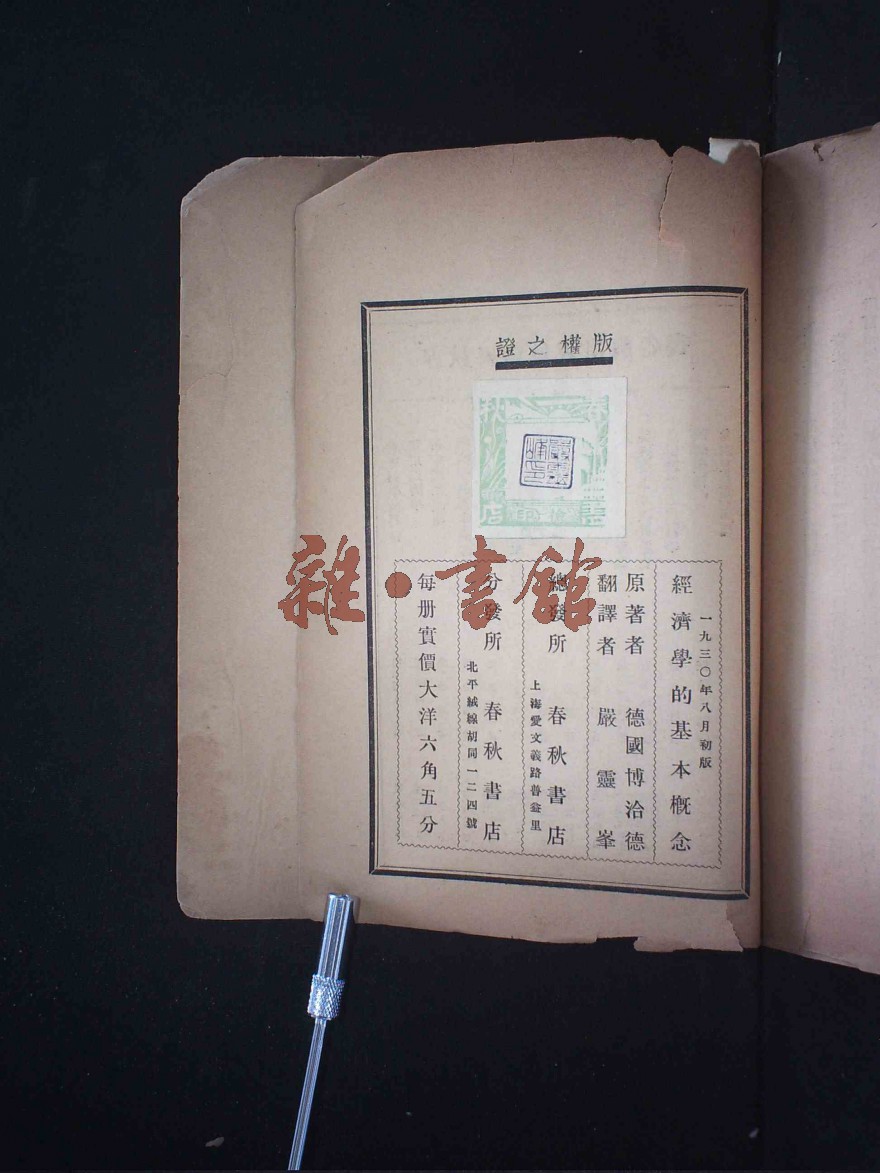 版權之證
春秋
書店
嚴靈峰印
一九三〇年八月初版
經濟學的基本概念
原著者 德國博洽德
翻譯者 嚴靈峯
總發所 春秋書店
上海愛文義路普益里
分發所 春秋書店
北平絨線胡同一二四號
每册實價大洋六角五分
雜·書館